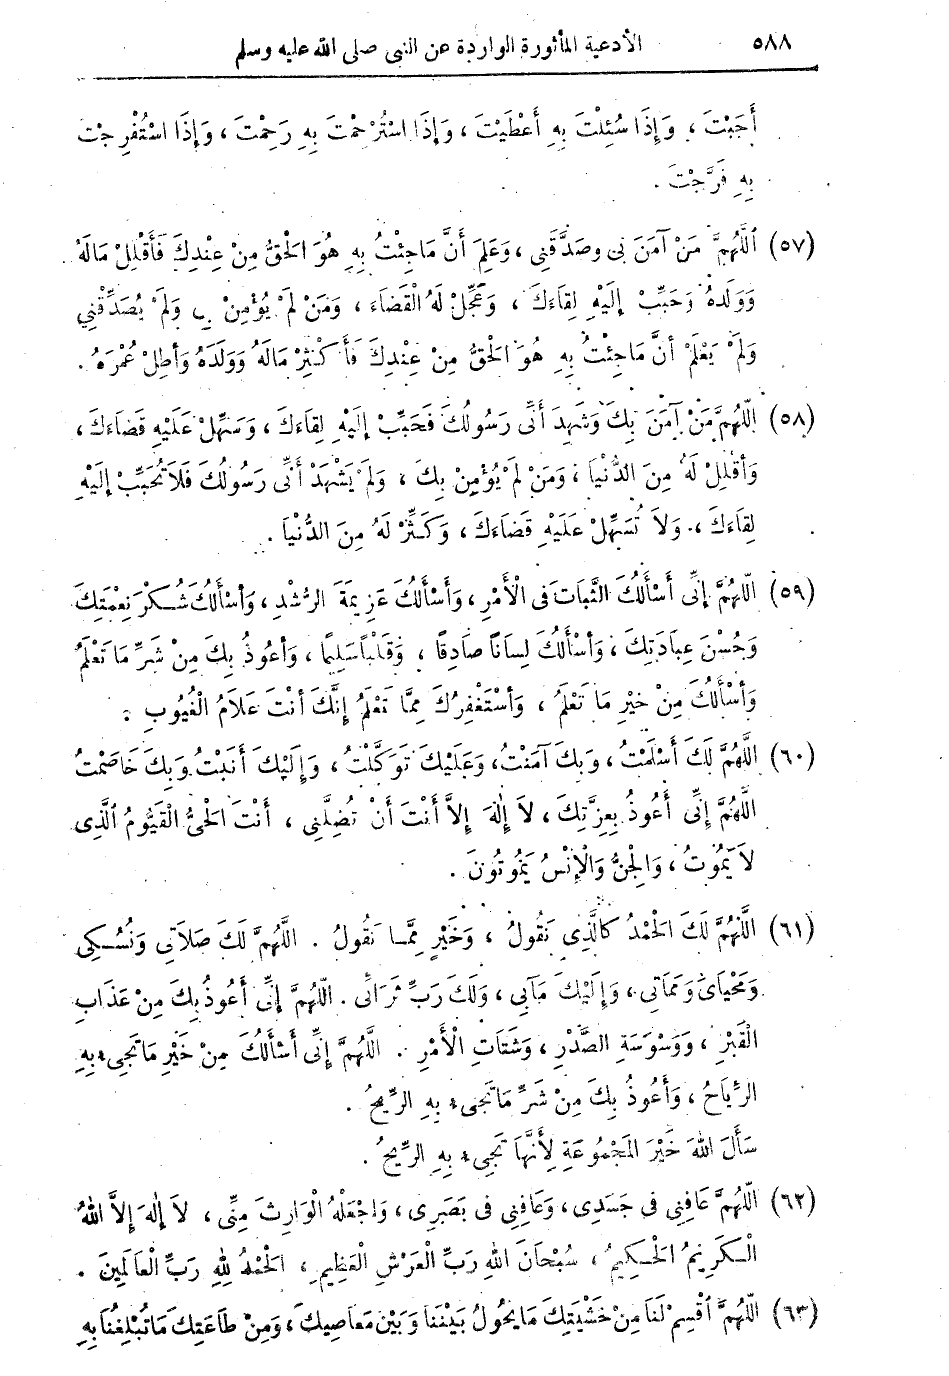 ٥٨٨ الأدعية المأثورة الواردة عن النبى صلى الله عليه وسلم
أَجَبْتَ ، وَإِذَا سُئِلْتَ بِهِ أَعْطَيْتَ ، وَإِذَا اسْتُرْحِمْتَ بِهِ رَحِمْتَ ، وَإِذَا اسْتُفْرِجْتَ
بِهِ فَرَّجْتَ .
(٥٧) اَللَّهُمَّ مَنْ آمَنَ بى وصَدَّقَنِى ، وَعَلِمَ أَنَّ مَاجِئْتُ بِهِ هُوَ الْحَقُّ مِنْ عِنْدِكَ فَأَقْلِلْ مَالَهُ
وَوَلَدهُ وَحَبِّبْ إِلَيْهِ لِقَاءَكَ ، وَعَجِّلْ لَهُ الْقَضَاءَ ، وَمَنْ لَمْ يُؤْمِنْ بى وَلَمْ يُصَدِّقْنِي
وَلَمْ يَعْلَمْ أنَّ مَاجِئْتُ بِهِ هُوَ الْحَقُّ مِنْ عِنْدِكَ فَأَكْثِرْ مَالَهُ وَوَلَدَهُ وَأطِلْ عُمْرَهُ .
(٥٨) اَللّٰهُمَّ مَنْ آمَنَ بِكَ وَشَهِدَ أَنِّى رَسُولُكَ فَحَبِّبْ إلَيْهِ لِقَاءَكَ ، وَسَهِّلْ عَلَيْهِ قَضَاءَكَ ،
وَأقْلِلْ لَهُ مِنَ الدُّنْيَا ، وَمَنْ لَمْ يُؤْمِنْ بِكَ ، وَلَمْ يَشْهَدْ أَنِّى رَسُولُكَ فَلَا تُحَبِّبْ إِلَيْهِ
لِقَاءَكَ ، وَلاَ تُسَهِّلْ عَلَيْهِ قَضَاءَكَ ، وَكَثِّرْ لَهُ مِنَ الدُّنْيَا .
(٥٩) اَللّٰهُمَّ إِنِّى أَسْأَلُكَ الثَّبَاتَ فى الْأَمْرِ ، وَأَسْأَلُكَ عَزِيمَةَ الرُّشْدِ ، وَأسْأَلُكَ شُكْرَ نِعْمَتِكَ
وَحُسْنَ عِبَادَتِكَ ، وَأسْأَلُكَ لِسَانًا صَادِقًا ، وَقَلْبًا سَلِيمًا ، وَأعُوذُ بِكَ مِنْ شَرِّ مَا تَعْلَمُ
وَأسْأَلُكَ مِنْ خَيْرِ مَا تَعْلَمُ ، وَأسْتَغْفِرُكَ مِمَّا تَعْلَمُ إِنَّكَ أنْتَ عَلَامُ الْغُيُوبِ .
(٦٠) اَللَّهُمَّ لَكَ أَسْلَمْتُ ، وَبِكَ آمَنْتُ ، وَعَلَيْكَ تَوَكَّلْتُ ، وَإِلَيْكَ أَنَبْتُ وَبِكَ خَاصَمْتُ
اَللَّهُمَّ إِنِّى أَعُوذُ بِعِزَّتِكَ ، لاَ إِلٰهَ إِلاَّ أَنْتَ أَنْ تُضِلَّنِى ، أَنْتَ الْحَىُّ الْقَيُّومُ اَلَّذِى
لاَ يَمُوتُ ، وَالْجِنُّ وَالْإِنْسُ يَمُوتُونَ .
(٦١) اَللَّهُمَّ لَكَ الْحَمْدُ كَالَّذِى نَقُولُ ، وَخَيْرٍ مِمَّا نَقُولُ . اللَّهُمَّ لَكَ صَلَاتِى وَنُسُكِى
وَمَحْيَاىَ وَمَمَاتِى ، وَإِلَيْكَ مَآبِى ، وَلَكَ رَبِّ تُرَاثِى . اللَّهُمَّ إنِّى أَعُوذُ بِكَ مِنْ عَذَابِ
الْقَبْرِ ، وَوَسْوَسَةِ الصَّدْرِ ، وَشَتَاتِ الْأَمْرِ . اَللَّهُمَّ إِنِّى أَسْأَلُكَ مِنْ خَيْرِ مَا تَجِىءُ بِهِ
الرِّيَاحُ ، وَأَعُوذُ بِكَ مِنْ شَرِّ مَا تَجِىءُ بِهِ الرِّيحُ .
سَأَلَ اللهَ خَيْرَ الْمَجْمُوعَةِ لِأَنَّهَا تَجِىءُ بِهِ الرِّيحُ .
(٦٢) اَللَّهُمَّ عَافِنِى فى جَسَدِى ، وَعَافِنِى فى بَصَرِى ، وَاجْعَلْهُ الْوَارِثَ مِنِّى ، لاَ إِلٰهَ إِلاَّ اللهُ
الْكَرِيمُ الْحَكِيمُ ، سُبْحَانَ اللهِ رَبِّ الْعَرْشِ الْعَظِيمِ ، الْحَمْدُ لِلهِ رَبِّ الْعَالَمِينَ .
(٦٣) اَللَّهُمَّ اُقْسِمْ لَنَا مِنْ خَشْيَتِكَ مَا يَحُولُ بَيْنَنَا وَبَيْنَ مَعَاصِيكَ ، وَمِنْ طَاعَتِكَ مَا تُبْلِغُنَا بِهِ